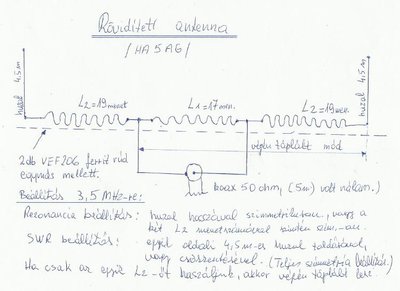 Rövidített antenna
/HA5AG/
huzal 4,5m
huzal 4,5m
L2=19menet
L1=17men.
L2=19men.
végén táplált mód
2db VEF206 ferrit rúd
egymás mellett.
koax 50 ohm, (5m) volt nálam.)
Beállítás 3,5 MHz-re:
Rezonancia beállítás: huzal hosszával szimmetrikusan, vagy a
két L2 menetszámával szinten szim.-an.
SWR beállítás: egyik oldali 4,5m-es huzal toldásával,
vagy csökkentésével. (Teljes szimmetria beállítás.)
Ha csak az egyik L2-őt használjuk, akkor végén táplált lesz.